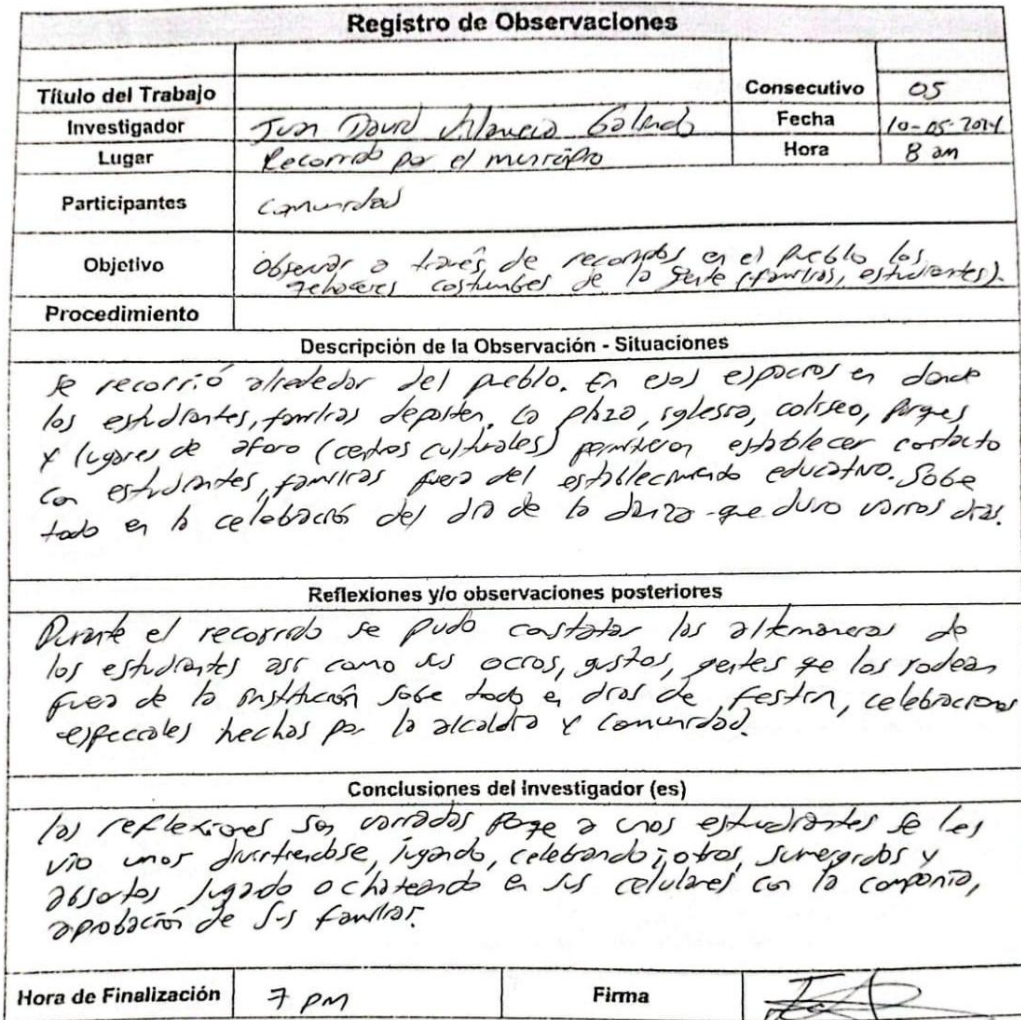 Registro de Observaciones
Título del Trabajo
Consecutivo 05
Investigador Juan David Galindo
Fecha 10-05-2024
Lugar Recorrido por el municipio
Hora 8 am
Participantes comunidad
Objetivo Observar a través de recorridos en el pueblo los
quehaceres costumbres de la gente (familias, estudiantes).
Procedimiento
Descripción de la Observación - Situaciones
Se recorrió alrededor del pueblo. En esos espacios en donde
los estudiantes, familias departen. La plaza, iglesia, coliseo, parques
y lugares de aforo (centros culturales) permitieron establecer contacto
con estudiantes, familias fuera del establecimiento educativo. Sobre
todo en la celebración del día de la danza que duro varios días.
Reflexiones y/o observaciones posteriores
Durante el recorrido se pudo constatar los de
los estudiantes así como sus ocios, gustos, gentes que los rodean
fuera de la institución sobre todo en días de festín, celebraciones
especiales hechas por la alcaldía y comunidad.
Conclusiones del Investigador (es)
las reflexiones son variadas porque a unos estudiantes se les
vio unos divirtiendose, jugando, celebrando; otros, sumergidos y
absortos jugando o chateando en sus celulares con la compañía,
aprobación de sus familias.
Hora de Finalización 7 PM Firma